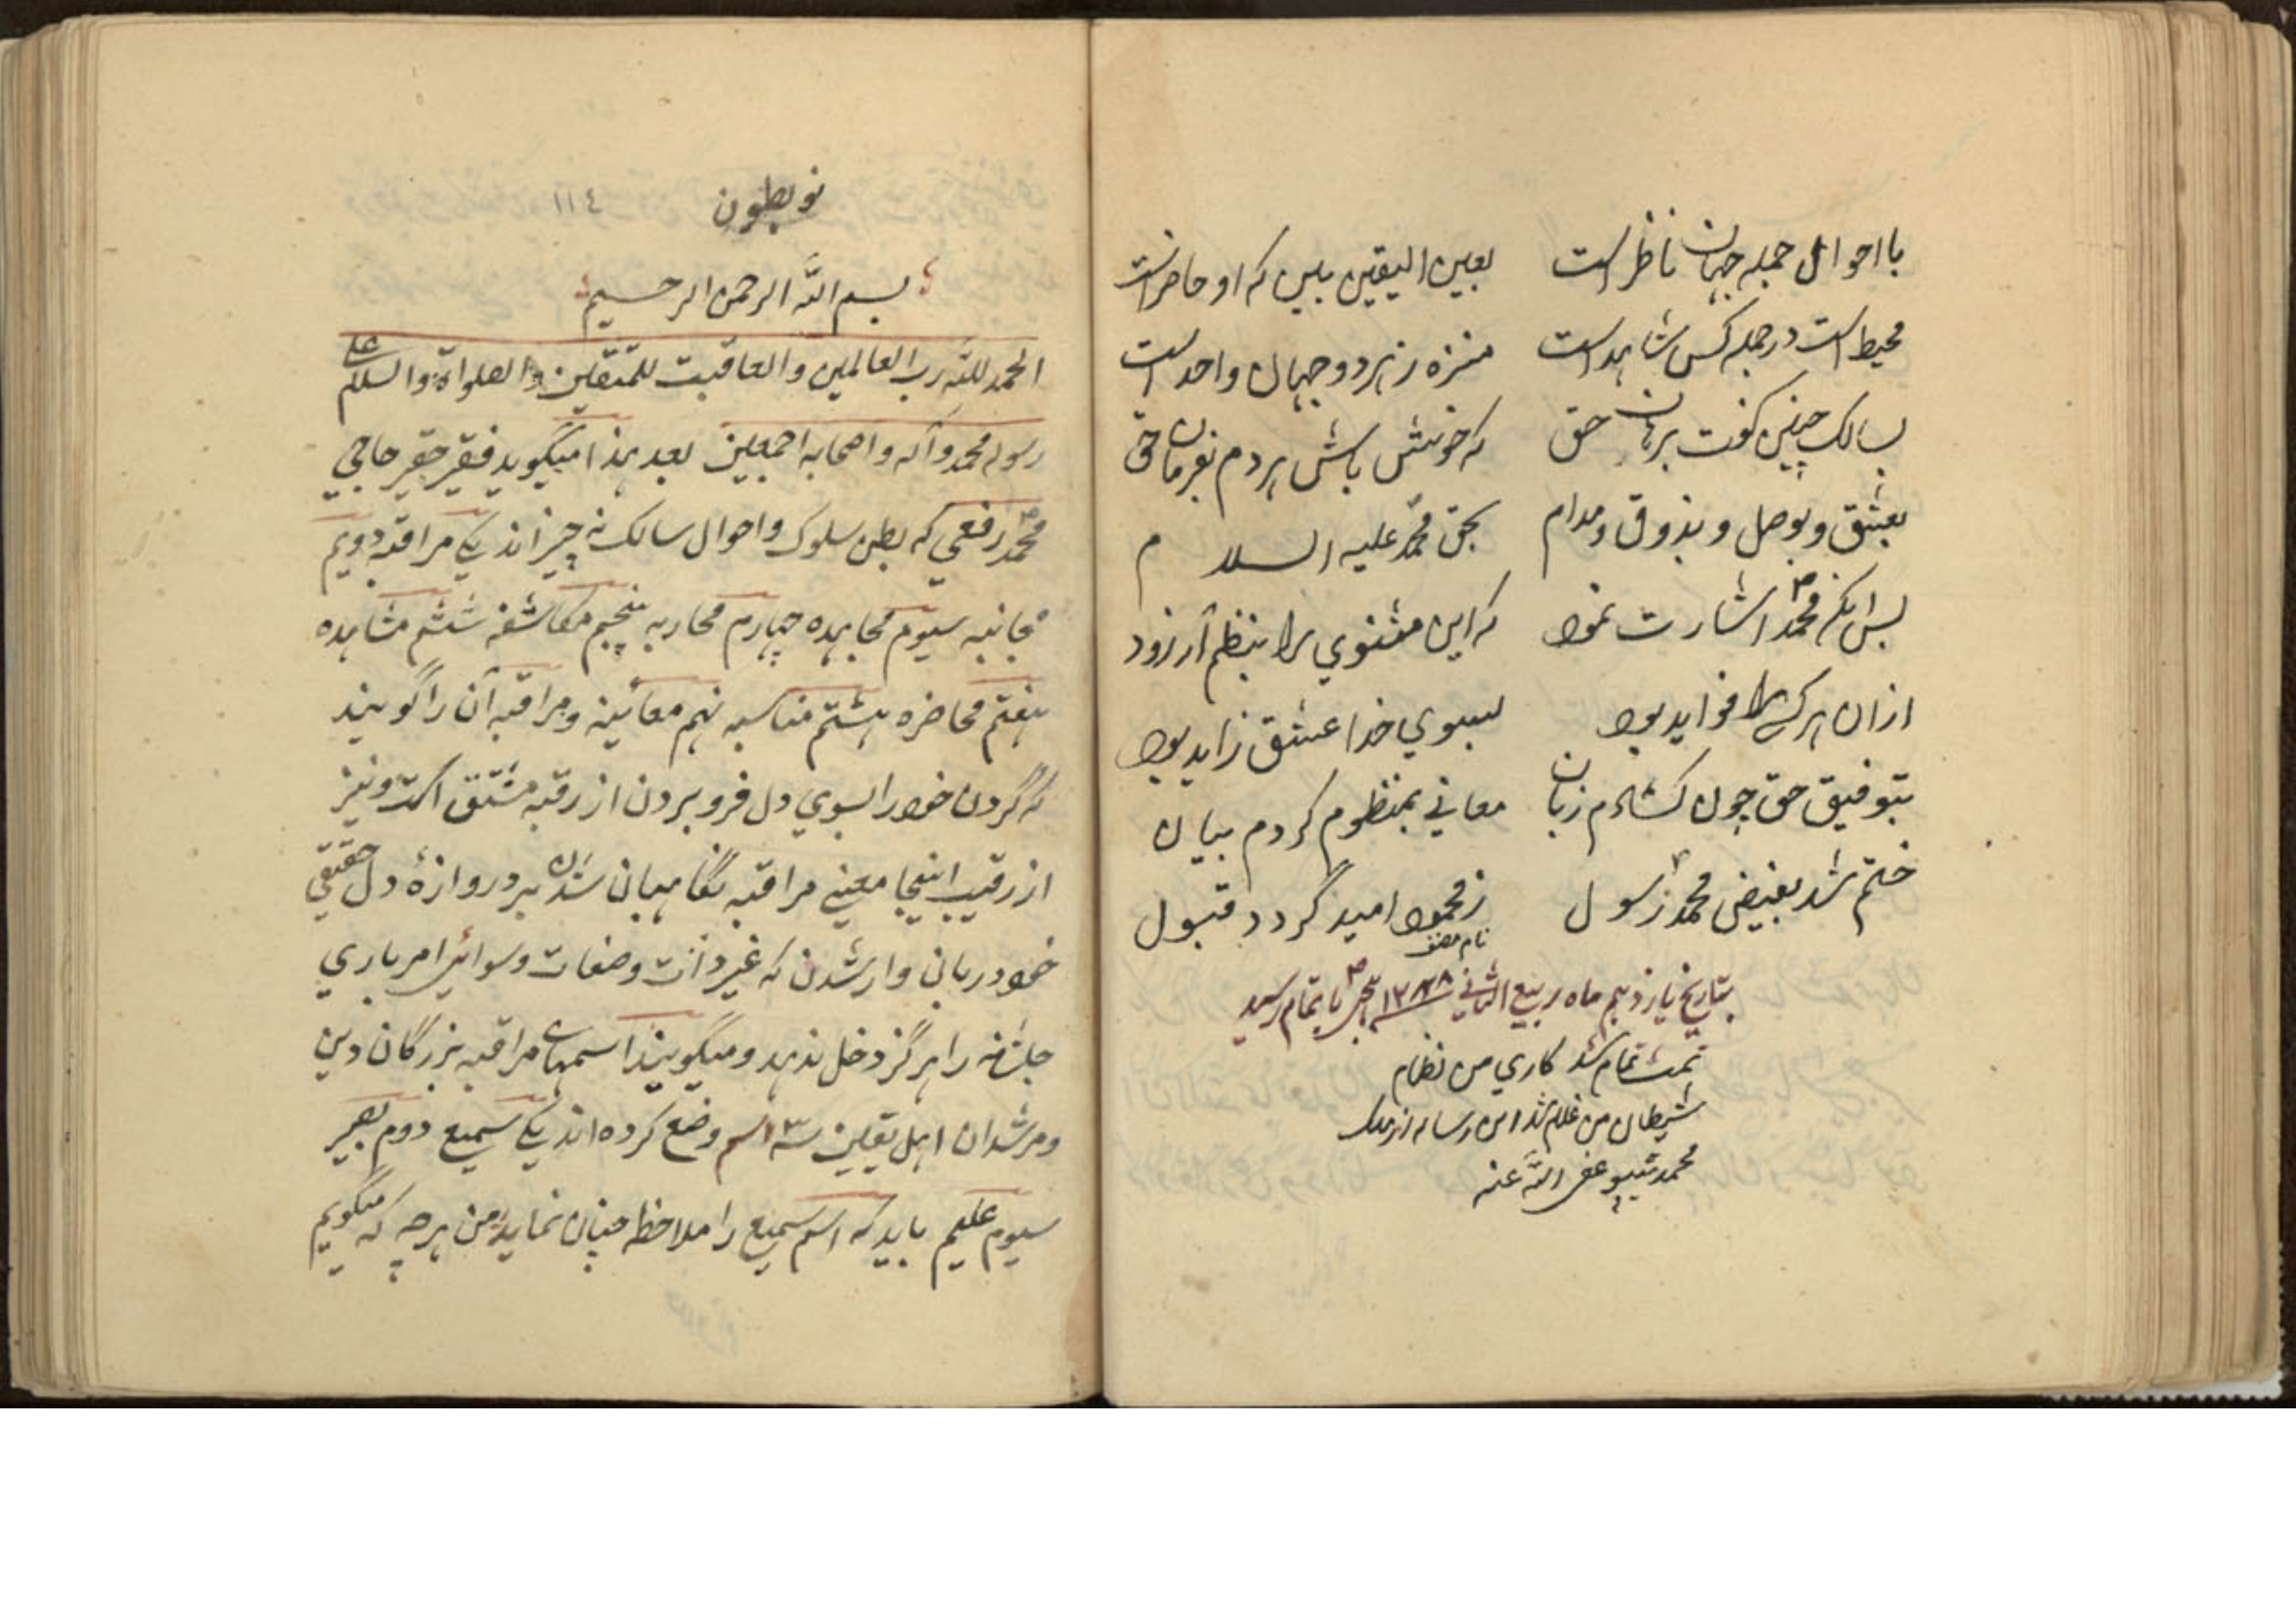 با احوال جمله جهان ناظر است بعین الیقین ببین که او حاضر است
محیط است در جمله کس شاهد است منزه ز هر دو جهان واحد است
بسالک چنین گفت برهان حق که خوش باش هر دم بفرمان حق
بعشق و بوصل و بذوق و مدام بحق محمد علیه السلام
بس انگه محمد اشارت نمود که این مثنوي را بنظم آر زود
ازان هر کسے را فواید بود بسوي خدا عشق زاید بود
بتوفیق حق چون کشادم زبان معاني بمنظوم کردم بیان
ختم شد بفیض محمد رسول ز محمود امید گردد قبول
نام مصنف
بتاریخ یازدهم ماه ربیع الثاني باتمام رسید
تمت تمام شد کاري من نظام
شیطان من غلام شد این رساله از ملک
محمد عفی الله عنه
نو بطون ١١٤
بسم الله الرحمن الرحیم
الحمد للله رب العالمین و العاقبت للمتقین و الصلواة و السلام علی
رسوله محمد و آله و اصحابه اجمعین بعد هذا میگوید فقیر حقیر حاجي
محمد رفعي که بطن سلوک و احوال سالک نه چیز اند یکے مراقبه دویم
مجانبه سیوم مجاهده چهارم محاربه پنجم مکاشفه ششم مشاهده
هفتم محاضره هشتم مناسبه نهم معائینه و مراقبه آن را گویند
که گردن خود را بسوي دل فرو بردن از رقبه مشتق است و نیز
از رقیب اینجا معنے مراقبه نگاهبان شدن بر دروازهٔ دل حقیقي
خود درباني وار شدن که غیر ذات وصفات و سوائے امر باري
جلشانه را هرگز دخل ندهد و میگویند اسمهاے مراقبه بزرگان دین
و مرشدان اهل یقین سه ٣ اسم وضع کرده اند یکے سمیع دوم بصیر
سیوم علیم باید که اسم سمیع را ملاحظه چنان نماید من هر چه که میگویم